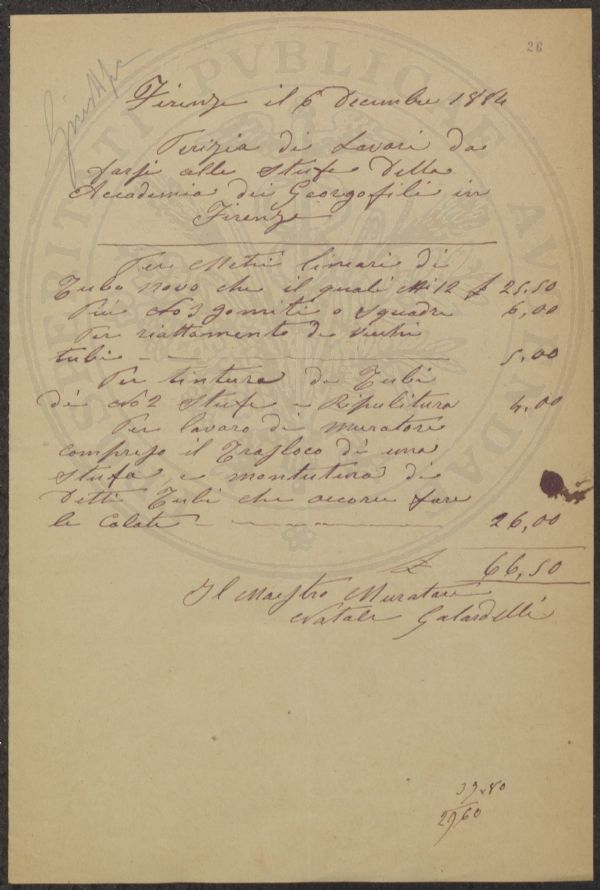 26
Firenze il 6 Decembre 1884
Perizia di Lavori da
farsi alle Stufe Della
Accademia dei Georgofili in
Firenze
Per Metri lineari di
Tubo novo che il quali Mi 12 £ 25,50
Più No 3 gomiti o Squadre 6,00
Per riattamento di vechi
tubi 5,00
Per tintura di Tubi
di No 2 Stufe e Ripulitura 4,00
Per lavoro di muratore
compreso il Trasloco di una
Stufa, e montatura di
Detti Tubi che accore fare
le Calate 26,00
£ 66,50
Il Maestro Muratore
Natale Galardelli
39.40
2960